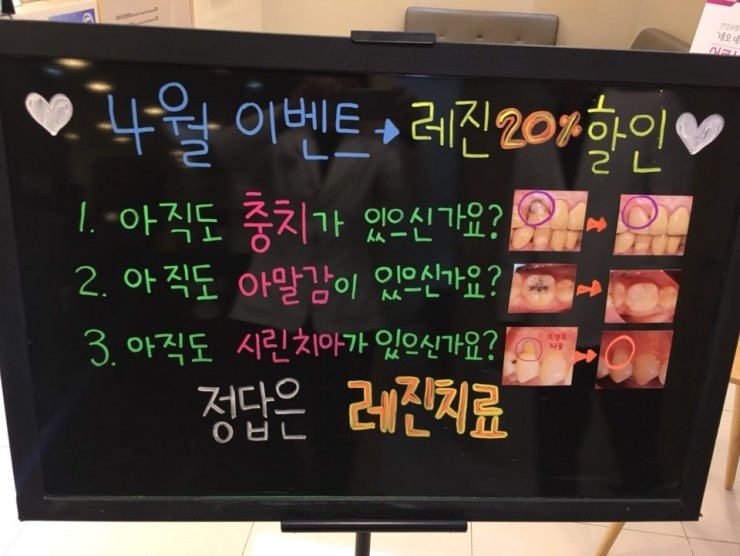 4월 이벤트→레진20%할인
1. 아직도 충치가 있으신가요?
2. 아직도 아말감이 있으신가요?
3. 아직도 시린치아가 있으신가요?
정답은 레진치료